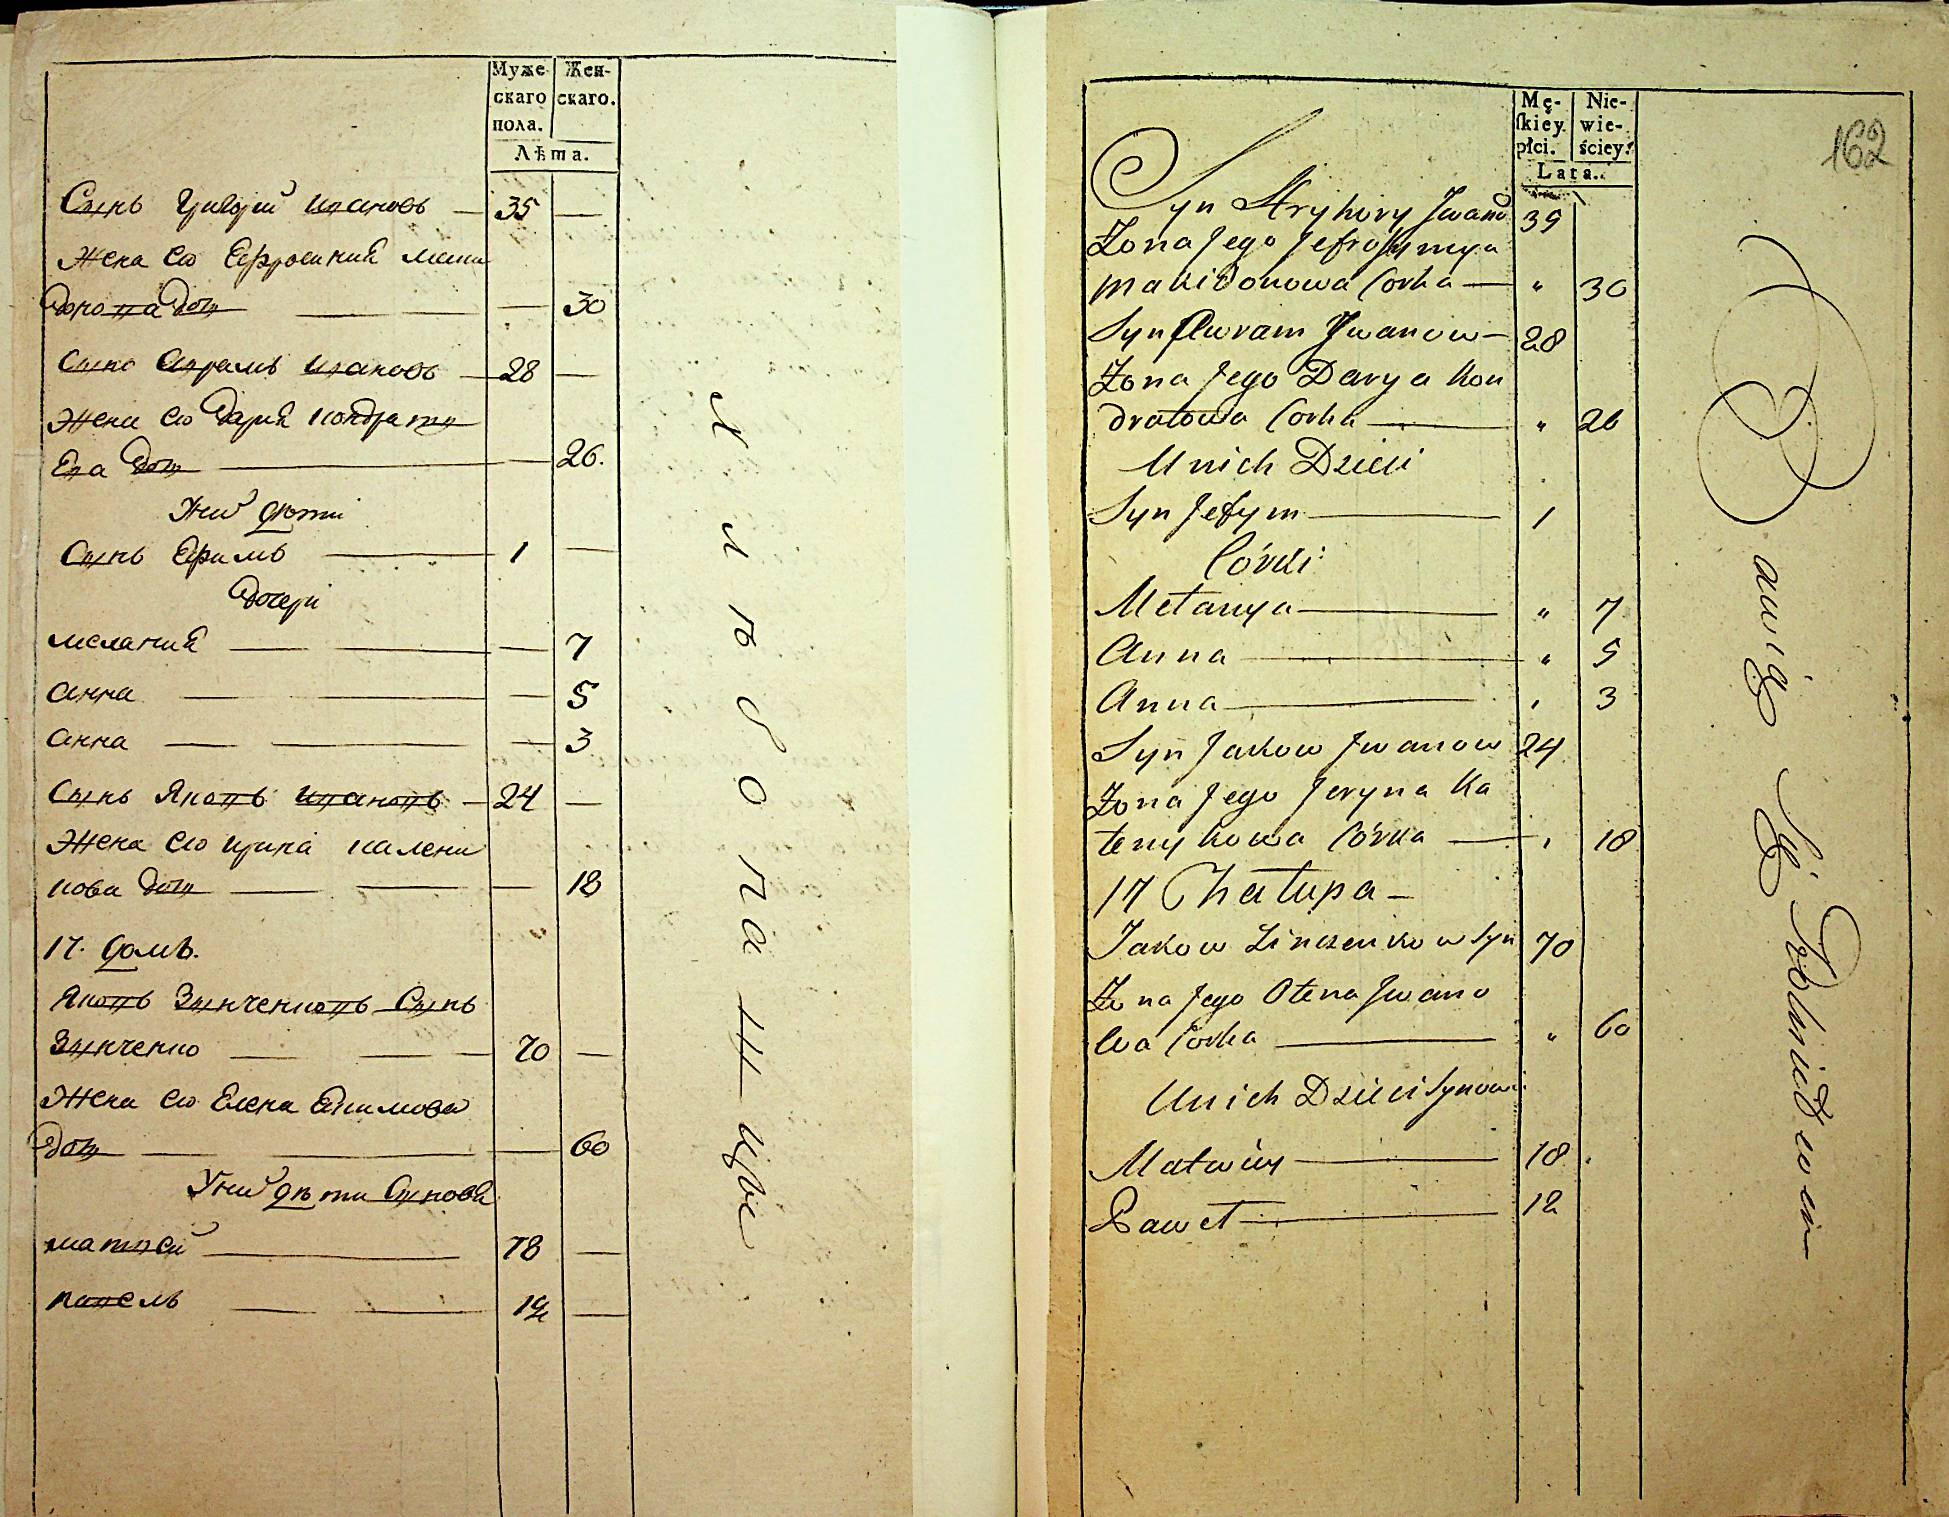 Муже-
скаго
пола.
Жен-
скаго.
Лѣта.
Сынъ Григорий Ивановъ — 35 —
Жена его Ефросиния Маки
донова дощ — — 30
Сынъ Аврамъ Ивановъ — 28 —
Жена его Дария Кондрать
Ева дощ — — 26.
У них дѣти
Сынъ Ефимъ — 1 —
Дочери
Мелания — — 7
Анна — — 5
Анна — — 3
Сынъ Яковъ Ивановъ — 24 —
Жена его Ирина Калени
кова дощ — — 18
17. домъ.
Яковъ Зинченковъ Сынъ
Зинченко — 70 —
Жена его Елена
дощ — — 60
У них дѣти Сыновя
Матвей — 18 —
Павелъ — 12 —
Хлѣбопашцы
162
Mę-
skiey
płci.
Nie-
wie-
ściey.
Lata.
Syn Hryhory Jwano 35
Żona Jego Jefrosymya
Makidonowa Corka — " 30
Syn Awram Jwanow — 28
Żona Jego Darya Kon
dratowa Corka — " 26
U nich Dzieci
Syn Jefym — 1
Córki
Mełanya — " 7
Anna — " 5
Anna — " 3
Syn Jakow Jwanow 24
Żona Jego Jeryna Ka
lenykowa Córka — " 18
17 Chałupa —
Jakow Zinczenkow Syn 70
Żona Jego Ołena Jwano
wa Corka — " 60
U nich Dzieci Synowi
Matwiy — 18
Paweł — 12